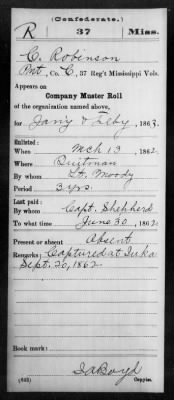 (Confederate.)
R 37 Miss.
C. Robinson
Pvt, Co. C, 37 Reg't Mississippi Vols.
Appears on
Company Muster Roll
of the organization named above,
for Jan'y & Feby, 1863.
Enlisted:
When Mch 13, 1862.
Where Quitman
By whom Lt. Moody
Period 3 yrs.
Last paid:
By whom Capt. Shepherd
To what time June 30, 1862.
Present or absent Absent
Remarks: Captured at Iuka
Sept. 20, 1862
Book mark:
(642) Copyist.